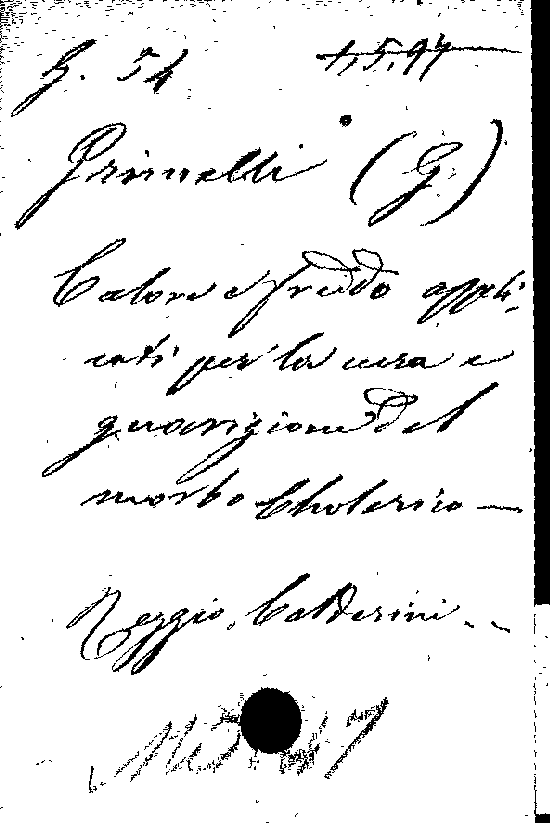 G. 54 1,5,97
Grimelli (G.)
Calore e freddo appli-
cati per la cura e
guarigione del
morbo Cholerico —
Reggio, Calderini - -